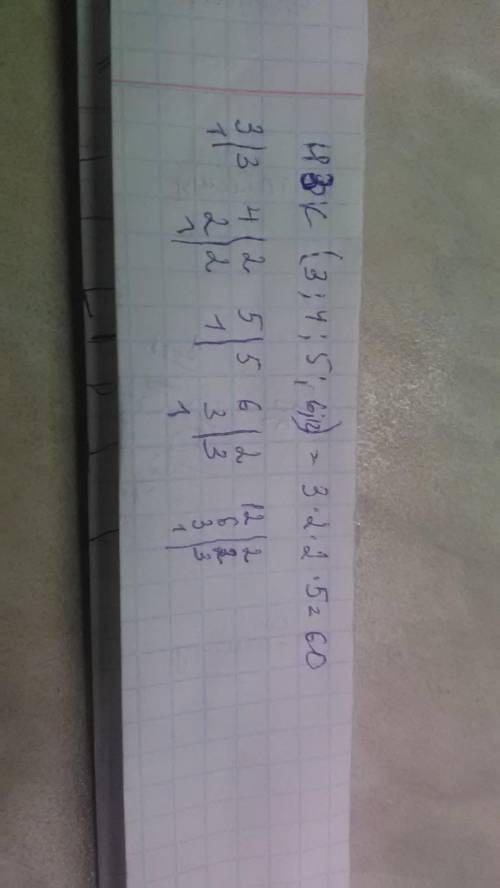 НОК (3; 4; 5; 6; 12) = 3·2·2·5=60
3|3 4|2 5|5 6|2 12|2
1| 2|2 1| 3|3 6|2
1| 1 3|3
1|